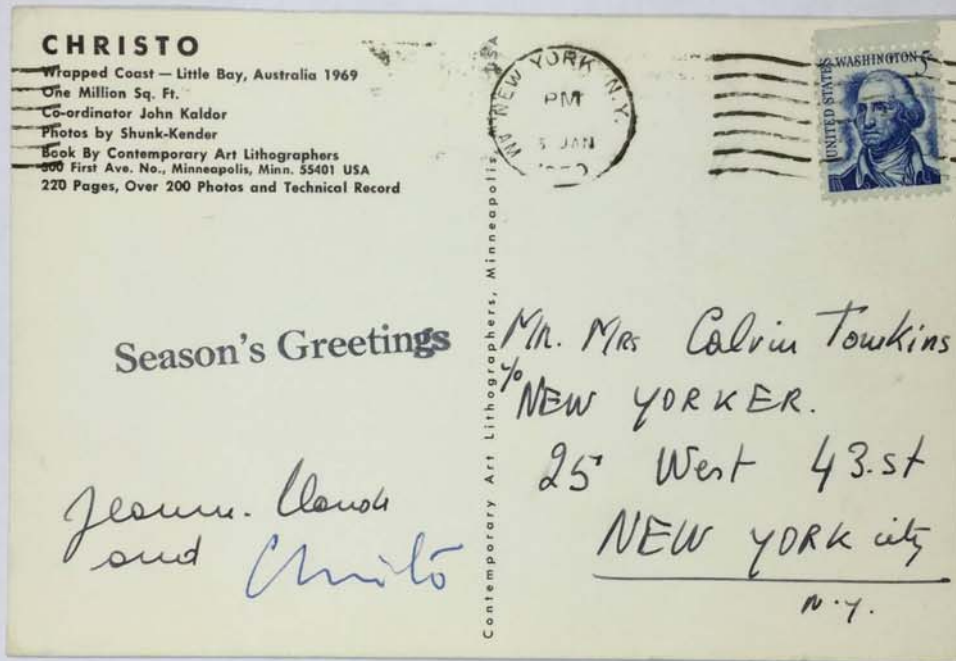 CHRISTO
Wrapped Coast — Little Bay, Australia 1969
One Million Sq. Ft.
Co-ordinator John Kaldor
Photos by Shunk-Kender
Book By Contemporary Art Lithographers
500 First Ave. No., Minneapolis, Minn. 55401 USA
220 Pages, Over 200 Photos and Technical Record
Season's Greetings
Jeanne-Claude
and Christo
Contemporary Art Lithographers, Minneapolis, USA
NEW YORK N.Y.
PM
JAN
UNITED STATES
WASHINGTON 5¢
Mr. Mrs Calvin Tomkins
c/o
NEW YORKER.
25 West 43.st
NEW YORK city
N.Y.